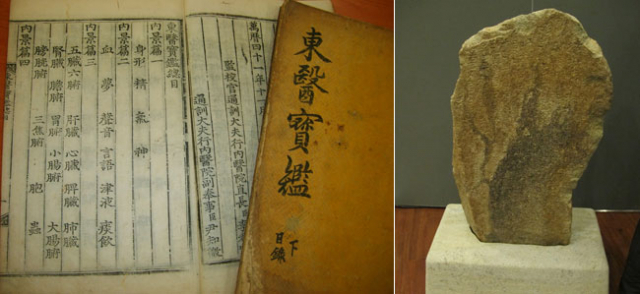 東醫寶鑑
下
目錄
萬曆四十一年十一月
監校官通訓大夫行內醫院直長
通訓大夫行內醫院副奉事 尹知微
東醫寶鑑總目
內景篇一
身形 精 氣 神
內景篇二
血 夢 聲音 言語 津液 痰飲
內景篇三
五臟六腑 肝臟 心臟 脾臟 肺臟
腎臟 膽腑 胃腑 小腸腑 大腸腑
膀胱腑 三焦腑 胞 蟲
內景篇四